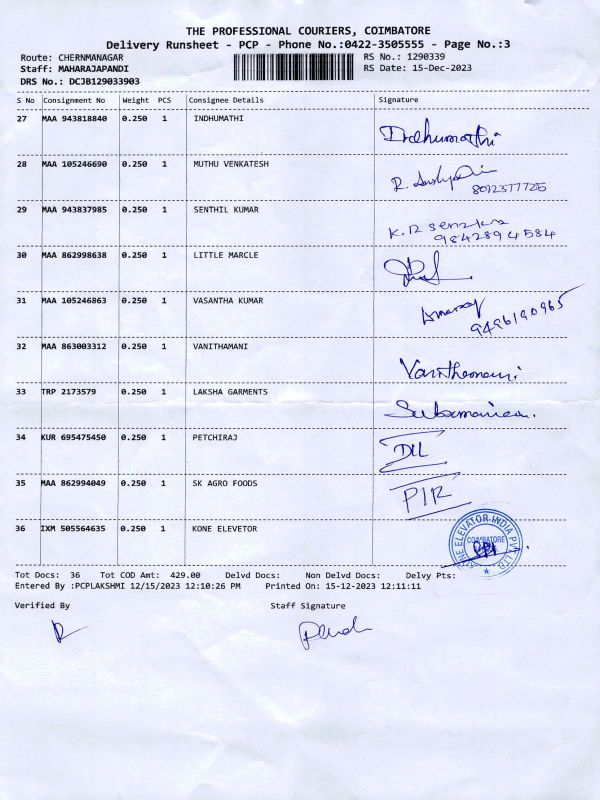 THE PROFESSIONAL COURIERS, COIMBATORE
Delivery Runsheet - PCP - Phone No.:0422-3505555 - Page No.:3
Route: CHERNMANAGAR RS No.: 1290339
Staff: MAHARAJAPANDI RS Date: 15-Dec-2023
DRS No.: DCJB129033903
S No Consignment No Weight PCS Consignee Details Signature
27 MAA 943818840 0.250 1 INDHUMATHI
Indhumathi
28 MAA 105246690 0.250 1 MUTHU VENKATESH
8012377725
29 MAA 943837985 0.250 1 SENTHIL KUMAR
K.R
9842894584
30 MAA 862998638 0.250 1 LITTLE MARCLE
31 MAA 105246863 0.250 1 VASANTHA KUMAR
9496190965
32 MAA 863003312 0.250 1 VANITHAMANI
33 TRP 2173579 0.250 1 LAKSHA GARMENTS
34 KUR 695475450 0.250 1 PETCHIRAJ
35 MAA 862994049 0.250 1 SK AGRO FOODS
36 IXM 505564635 0.250 1 KONE ELEVETOR
KONE ELEVATOR INDIA PVT. LTD.
COIMBATORE
Tot Docs: 36 Tot COD Amt: 429.00 Delvd Docs: Non Delvd Docs: Delvy Pts:
Entered By :PCPLAKSHMI 12/15/2023 12:10:26 PM Printed On: 15-12-2023 12:11:11
Verified By Staff Signature